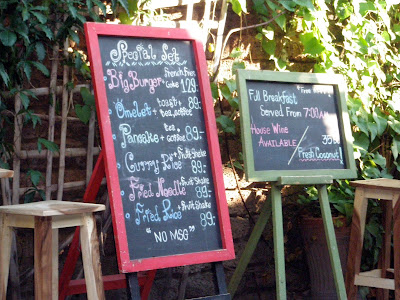 Special Set
Big Burger + French Fries Coke 129.-
Omelet + toast + tea, coffee 89.-
Pancake + tea coffee 89.-
Curry Rice + Fruit Shake 89.-
Fried Noodle + Fruit Shake 89.-
Fried Rice + Fruit Shake 89.-
"NO MSG"
Full Breakfast
Served From 7:00AM
House Wine
AVAILABLE
Fresh Coconut!